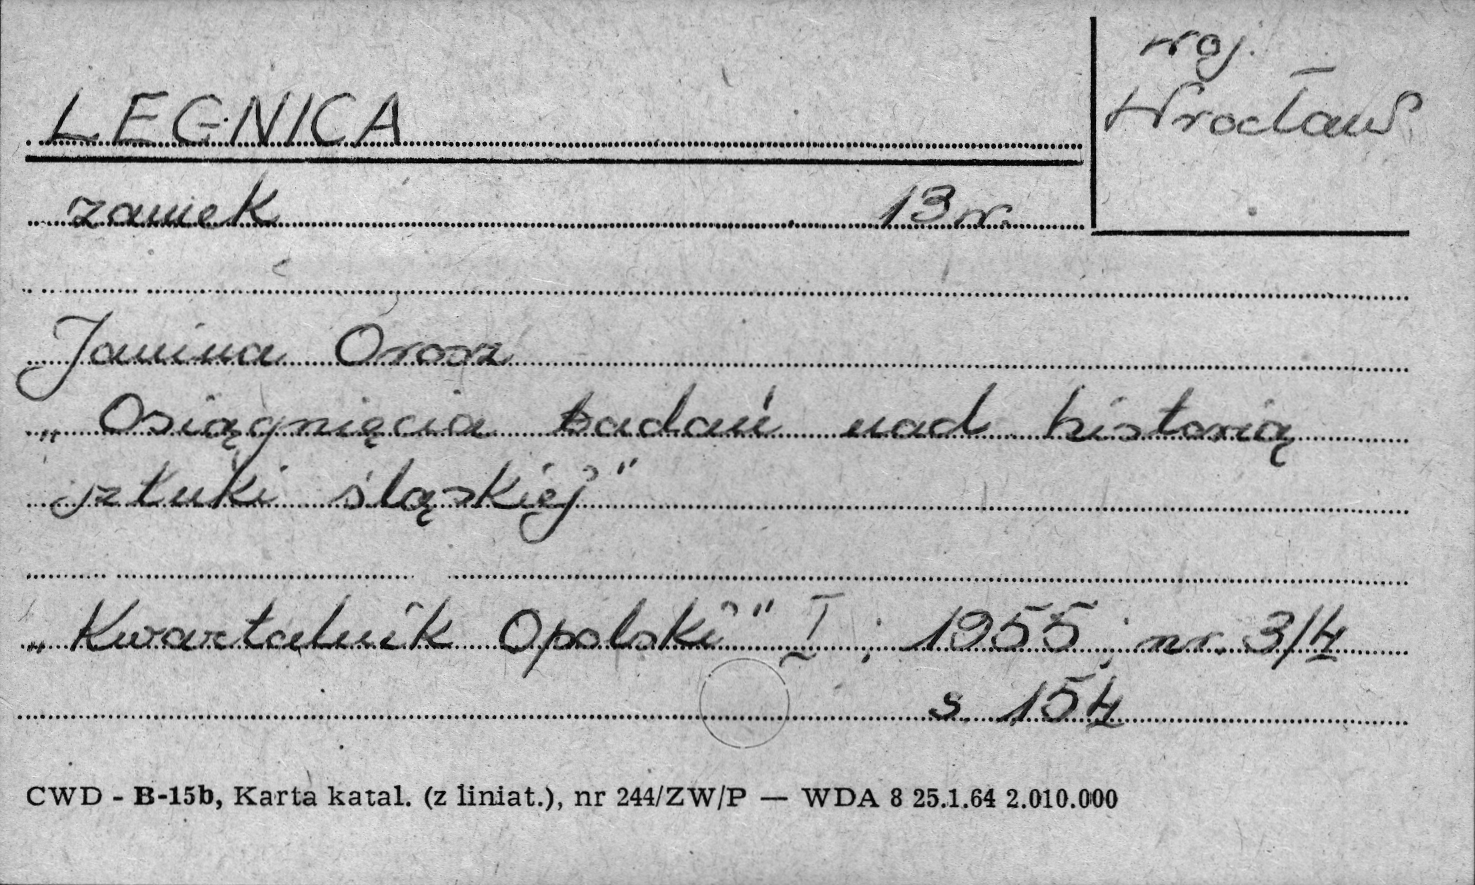 LEGNICA
woj.
Wrocław
zamek 13 w.
Janina Orosz
„Osiągnięcia badań nad historią
sztuki śląskiej"
„Kwartalnik Opolski" I; 1955; nr. 3/4
s 154
CWD - B-15b, Karta katal. (z liniat.), nr 244/ZW/P — WDA 8 25.1.64 2.010.000